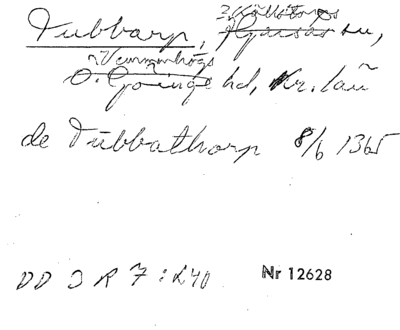 Dubbarp, Källstorps
Hjärsås sn,
Vemmenhögs
Ö. Göinge hd, Kr. län
de Dubbathorp 8/6 1365
DD 3 R 7: 240 Nr 12628